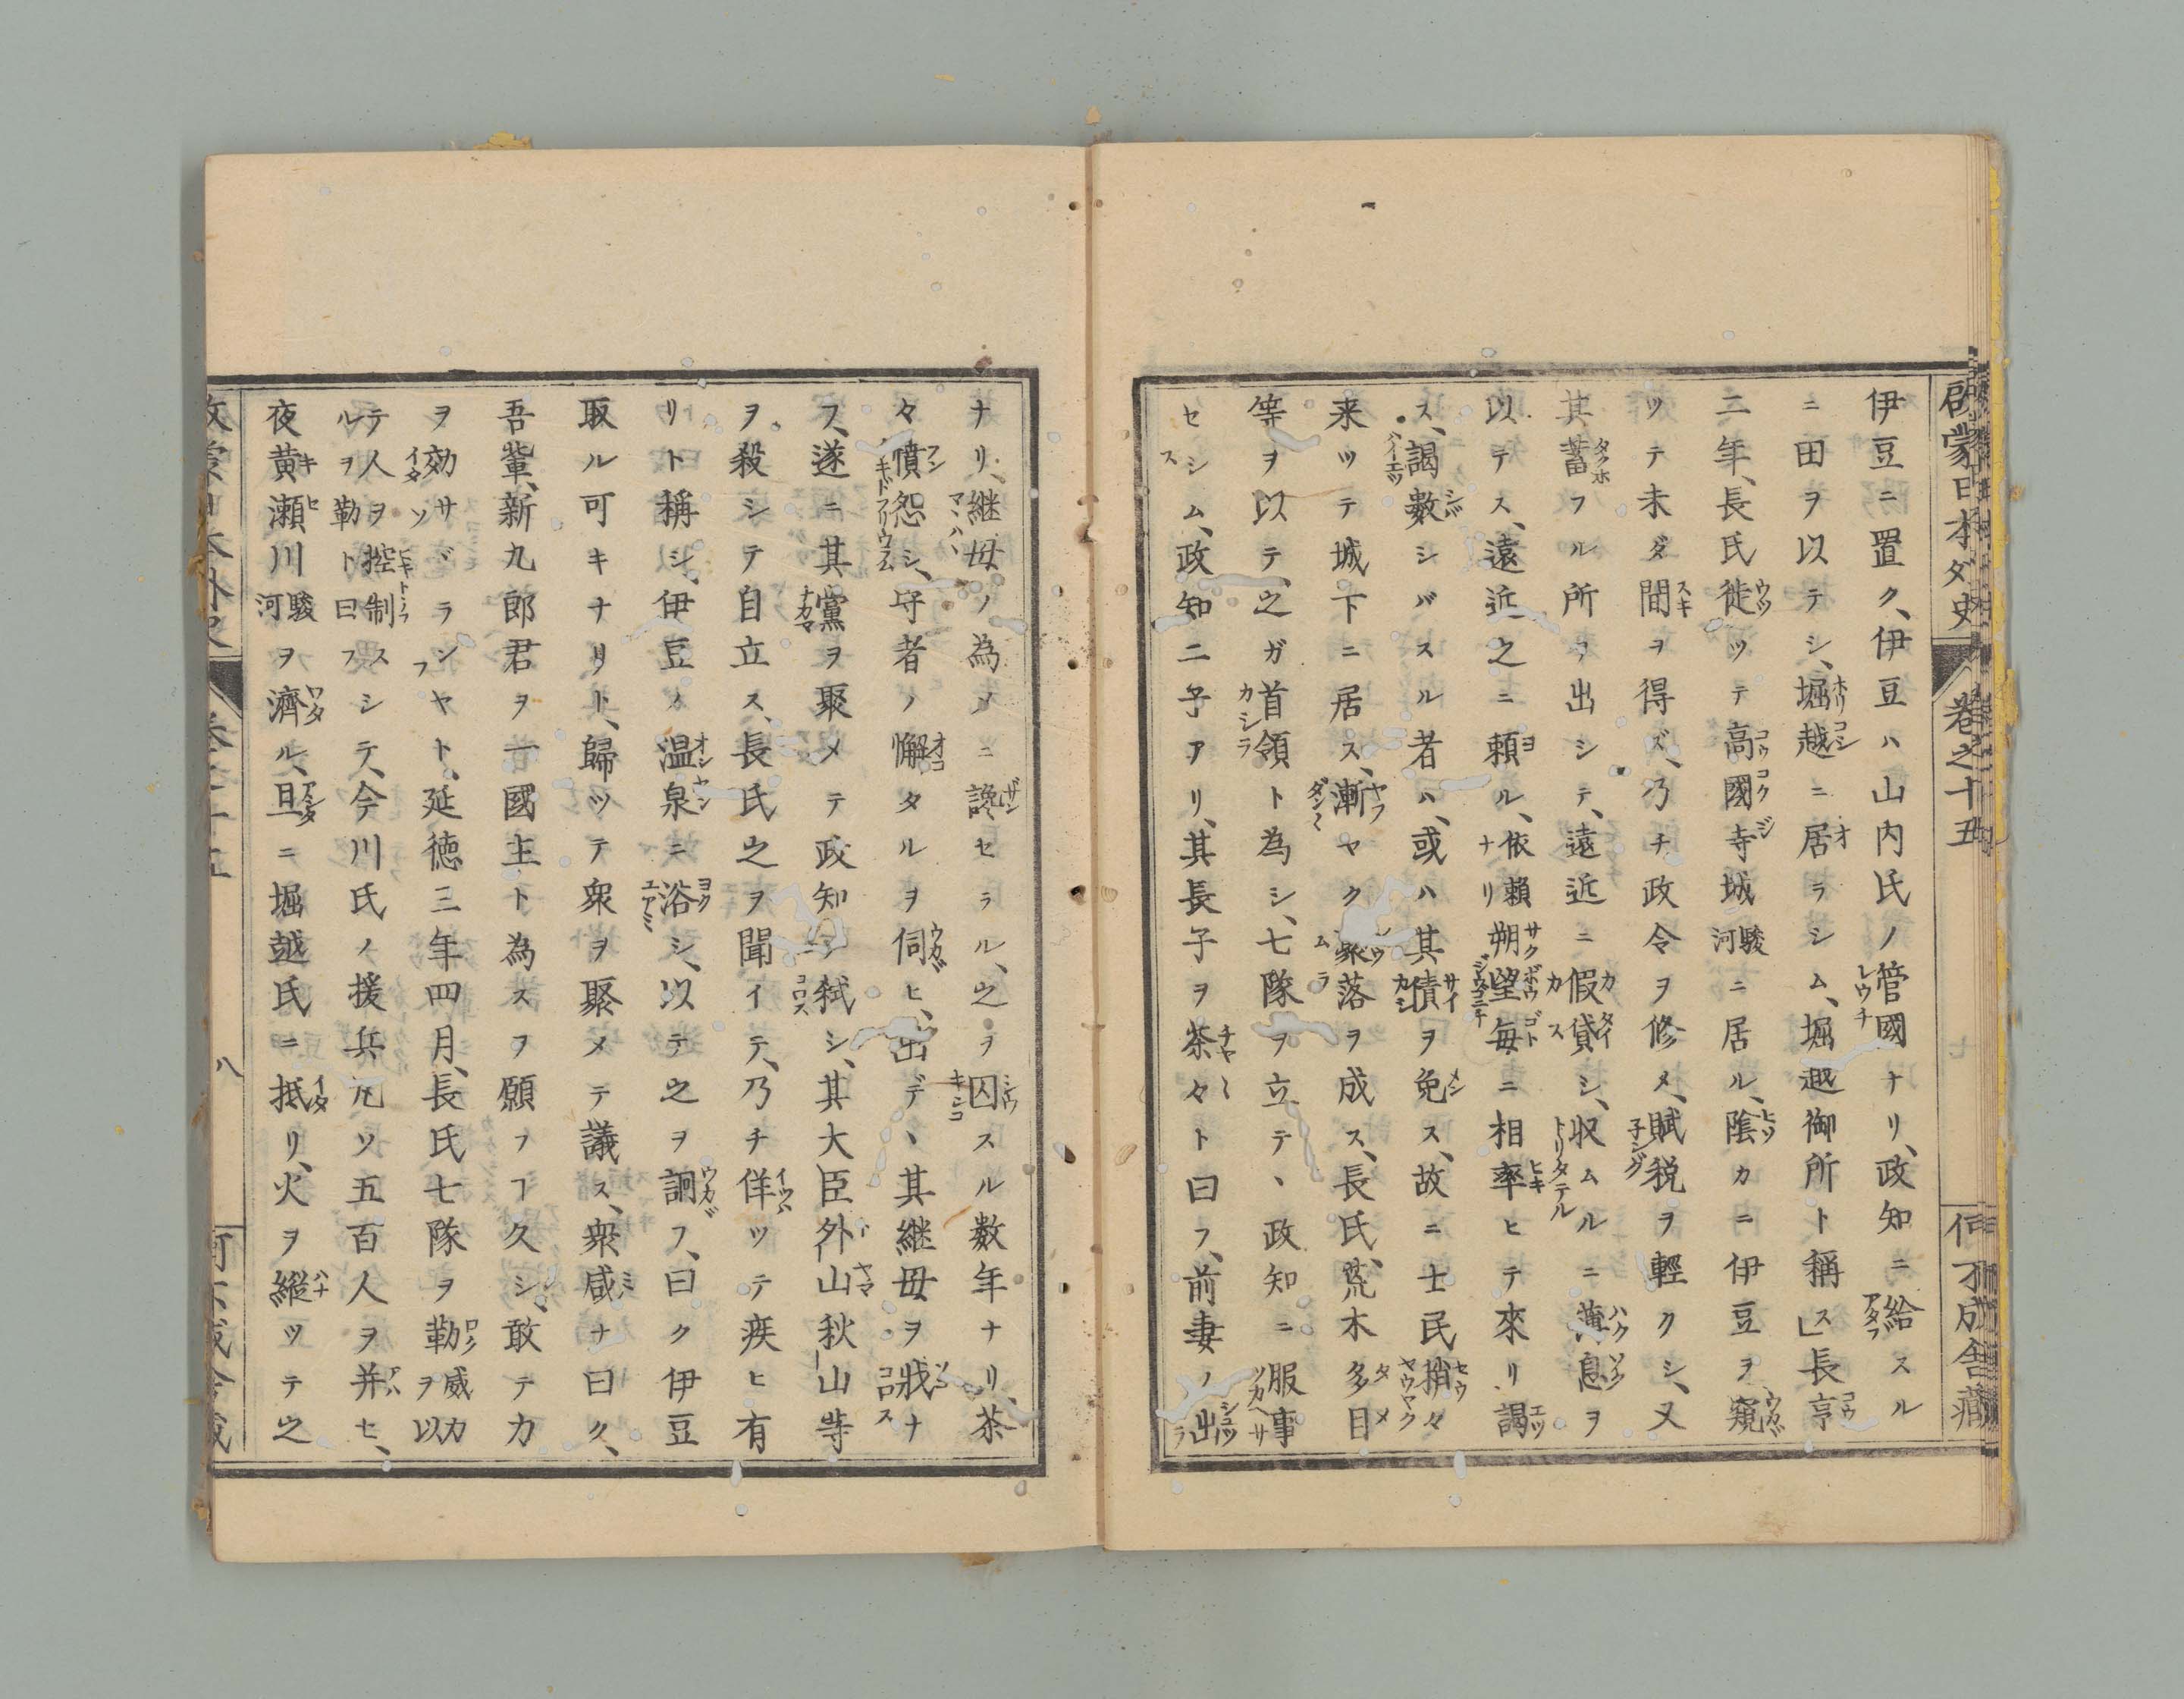 伊豆ニ置ク、伊豆ハ山内氏ノ管國ナリ、政知ニ給スル
ニ田ヲ以テシ、堀越ニ居ラシム、堀越御所ト稱ス」長亨
二年、長氏徙ツテ高國寺城駿河ニ居ル、陰カニ伊豆ヲ窺
ツテ未ダ間ヲ得ズ、乃チ政令ヲ修メ、賦税ヲ輕クシ、又
其蓄フル所ヲ出シテ、遠近ニ假貸シ、収ムルニ薄息ヲ
以テス、遠近之ニ頼ル、依頼ナリ朔望毎ニ相率ヒテ來リ謁
ス、謁數シバスル者ハ、或ハ其債ヲ免ス、故ニ士民稍々
来ツテ城下ニ居ス、漸ヤク聚落ヲ成ス、長氏、荒木多目
等ヲ以テ、之ガ首領ト為シ、七隊ヲ立テ、政知ニ服事
セシム、政知二子アリ、其長子ヲ茶々ト曰フ、前妻ノ出
ナリ、継母ノ為メニ讒セラル、之ヲ囚スル数年ナリ、茶
々憤怨シ、守者ノ懈タルヲ伺ヒ、出デ、其継母ヲ戕ナ
フ、遂ニ其黨ヲ聚メテ政知ヲ弑シ、其大臣外山秋山等
ヲ殺シテ自立ス、長氏之ヲ聞イテ、乃チ佯ツテ疾ヒ有
リト稱シ、伊豆ノ温泉ニ浴シ、以テ之ヲ詗フ、曰ク伊豆
取ル可キナリト、歸ツテ衆ヲ聚メテ議ス、衆咸ナ曰ク、
吾輩、新九郎君ヲ一國主ト為スヲ願フヿ久シ、敢テ力
ヲ効サヾランヤト、延徳三年四月、長氏七隊ヲ勒威力ヲ以
テ人ヲ控制スルヲ勒ト曰フシテ、今川氏ノ援兵凡ソ五百人ヲ并セ、
夜黄瀬川駿河ヲ濟ル、旦ニ堀越氏ニ抵リ、火ヲ縱ツテ之
啓蒙日本外史 卷之十五
八